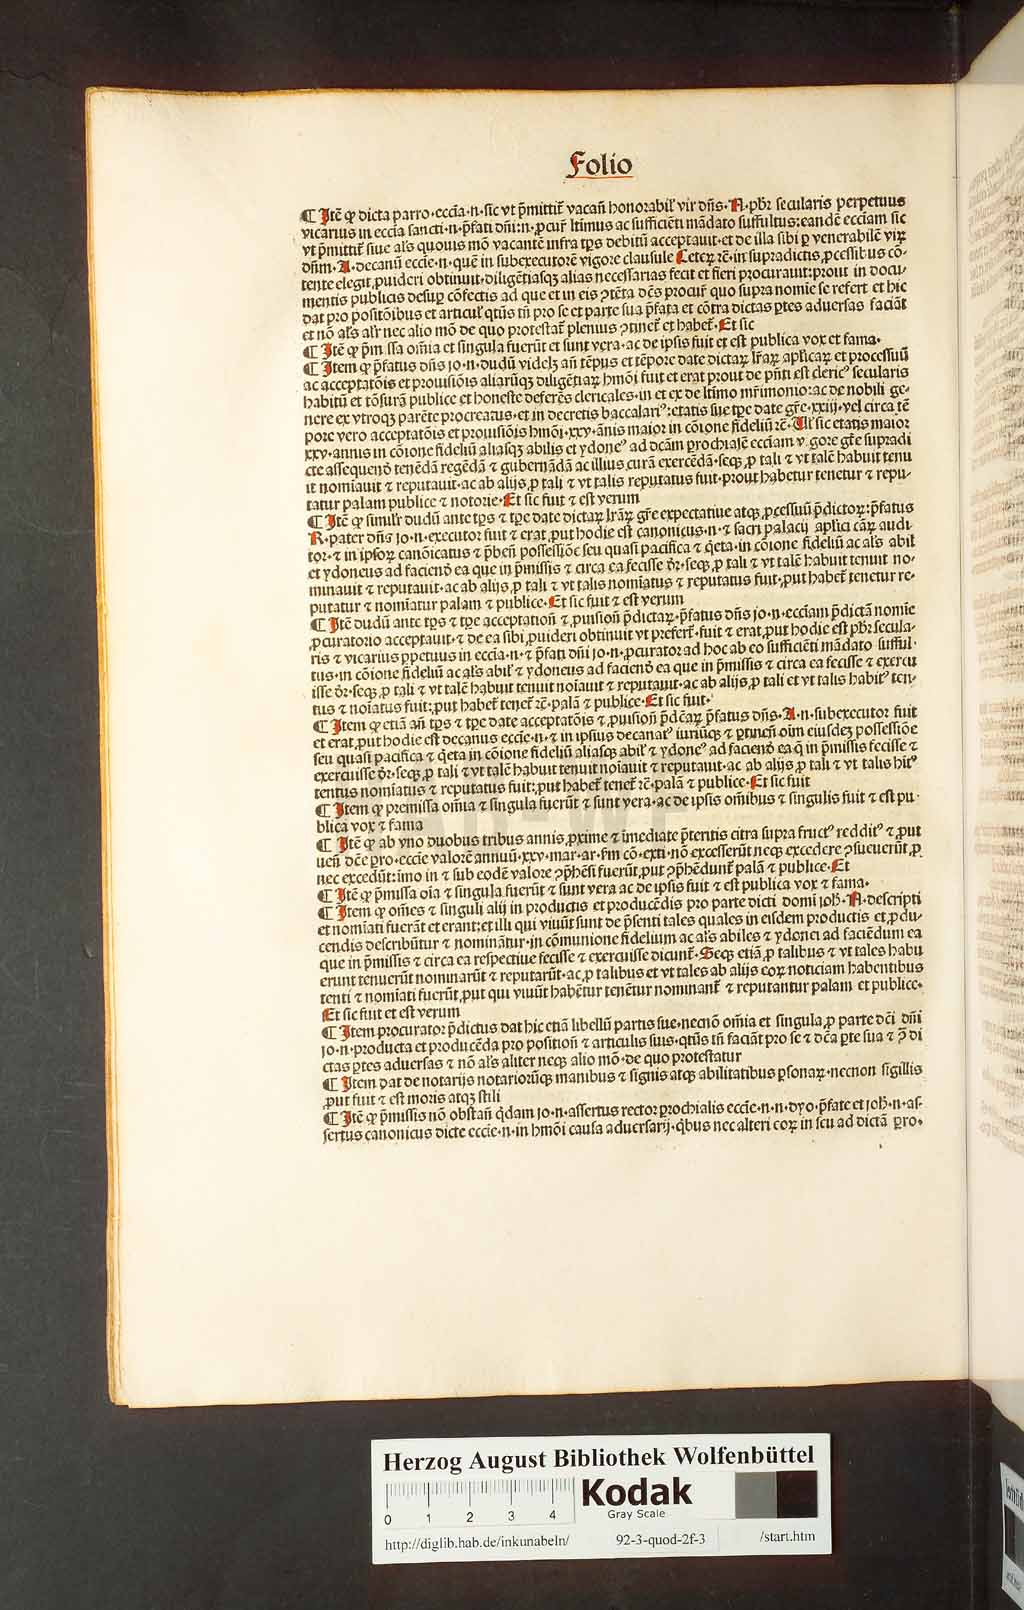 Folio
¶ Itē ꝙ dicta parro·eccĩa·n·sic vt p̃mittit᷑ vacañ honorabil᷑ vir dñs·N·pb̃r secularis perpetuus
vicarius in eccĩa sancti·n·p̃fati dñi·n·ꝓcur᷑ ltimus ac sufficiēti mãdato suffultus:eandē eccĩam sic
vt p̃mittit᷑ siue al̃s quouis mõ vacantē infra tp̃s debitũ acceptauit·et de illa sibi ꝑ venerabilē viꝝ
dñm·A·decanũ eccĩe·n·quē in subexecutorē vigore clausule Ceteꝝ rē·in supradictis ꝓcessibus cõ-
tente elegit ꝓuideri obtinuit·diligētiasqꝫ alias necessarias fecit et fieri procurauit:prout in docu-
mentis publicis desuꝑ cõfectis ad que et in eis ꝯtēta dēs procur᷑ quo supra nomie se refert et hic
dat pro positõibus et articul᷑ qtũs tñ pro se et parte sua p̃fata et cõtra dictas ꝑtes aduersas faciãt
et nõ al̃s al̃r nec alio mõ de quo protestat᷑ plenius ꝯtinet᷑ et habet᷑·Et sic
¶ Itē ꝙ p̃missa om̃ia et singula fuerũt et sunt vera·ac de ipsis fuit et est publica vox et fama·
¶ Item ꝙ p̃fatus dñs jo·n·dudũ videlꝫ añ tēpus et tēpore date dictaꝝ lr̃aꝝ apl̃icaꝝ et processuũ
ac acceptatõis et prouisiõis aliarũqꝫ diligētiaꝝ hmõi fuit et erat prout de pñti est cleric⁹ secularis
habitũ et tõsurã publice et honeste deferēs clericales·in et ex de ltimo mr̃imonio:ac de nobili ge-
nere ex vtroqꝫ parēte procreatus·et in decretis baccalari⁹:etatis sue tp̃e date gr̃e·xxiij·vel circa tē
pore vero acceptatõis et prouisiõis hmõi·xxv·ãnis maior in cõione fideliũ rē·Al̃ sic etatis maior
xxv·annis in cõione fideliũ aliasqꝫ abilis et ydone⁹ ad dcãm ꝑrochialē eccĩam vigore gr̃e supradi
cte assequenð tenēdã regēdã ⁊ gubernãdã ac illius curã exercēdã·seqꝫ ꝓ tali ⁊ vt talē habuit tenu
it nomĩauit ⁊ reputauit·ac ab alijs ꝓ tali ⁊ vt talis reputatus fuit·prout habetur tenetur ⁊ repu-
tatur palam publice ⁊ notorie·Et sic fuit ⁊ est verum
¶ Itē ꝙ simil̃r dudũ ante tp̃s ⁊ tp̃e date dictaꝝ lr̃aꝝ gr̃e expectatiue atqꝫ ꝓcessuũ p̃dictoꝝ:p̃fatus
R·pater dñs jo·n·executor fuit ⁊ erat ꝓut hodie est canonicus·n·⁊ sacri palacij apl̃ici cãꝝ audi-
tor·⁊ in ipsoꝝ canõicatus ⁊ p̃beñ possessiõe seu quasi pacifica ⁊ q̃eta·in cõione fideliũ ac al̃s abil᷑
et ydoneus ad faciend̃ ea que in p̃missis ⁊ circa ea fecisse d̃r·seqꝫ ꝓ tali ⁊ vt talē habuit tenuit no-
minauit ⁊ reputauit·ac ab alijs ꝓ tali ⁊ vt talis nomĩatus ⁊ reputatus fuit·ꝓut habet᷑ tenetur re-
putatur ⁊ nomiatur palam ⁊ publice·Et sic fuit ⁊ est verum
¶ Itē dudũ ante tp̃s ⁊ tp̃e acceptationĩ ⁊ ꝓuisionĩ p̃dictaꝝ·p̃fatus dñs jo·n·eccĩam p̃dictã nomie
ꝓcuratorio acceptauit·⁊ de ea sibi ꝓuideri obtinuit vt prefert᷑·fuit ⁊ erat ꝓut hodie est pb̃r secula-
ris ⁊ vicarius ꝑpetuus in eccĩa·n·⁊ p̃fati dñi jo·n·ꝓcurator ad hoc ab eo sufficiēti mãdato sufful-
tus·in cõione fideliũ ac al̃s abil᷑ ⁊ ydoneus ad faciend̃ ea que in p̃missis ⁊ circa ea fecisse ⁊ exercu
isse d̃r·seqꝫ ꝓ tali ⁊ vt talē habuit tenuit noĩauit ⁊ reputauit·ac ab alijs ꝓ tali et vt talis habit⁹ ten-
tus ⁊ noĩatus fuit:ꝓut habet᷑ tenet᷑ rē·palã ⁊ publice·Et sic fuit·
¶ Item ꝙ etiã añ tp̃s ⁊ tp̃e date acceptatõis ⁊ ꝓuisionĩ p̃dcaꝝ p̃fatus dñs·A·n·subexecutor fuit
et erat ꝓut hodie est decanus eccĩe·n·⁊ in ipsius decanat⁹ iuriũqꝫ ⁊ ꝑtineñ oim eiusdeꝫ possessiõe
seu quasi pacifica ⁊ q̃eta in cõione fideliũ aliasqꝫ abil᷑ ⁊ ydone⁹ ad faciend̃ ea q̃ in p̃missis fecisse ⁊
exercuisse d̃r·seqꝫ ꝓ tali ⁊ vt talē habuit tenuit noĩauit ⁊ reputauit·ac ab alijs ꝓ tali ⁊ vt talis hit⁹
tentus nomiatus ⁊ reputatus fuit:ꝓut habet᷑ tenet᷑ rē·palã ⁊ publice·Et sic fuit
¶ Item ꝙ premissa om̃ia ⁊ singula fuerũt ⁊ sunt vera·ac de ipsis om̃ibus ⁊ singulis fuit ⁊ est pu-
blica vox ⁊ fama
¶ Itē ꝙ ab vno duobus tribus annis ꝓxime ⁊ ĩmediate p̃teritis citra supra fruct⁹ reddit⁹ ⁊ ꝓut
ueñ dcē ꝑro·eccĩe valorē annuũ·xxv·mar·ar·ſm cõ·exti·nõ excesserũt neqꝫ excedere ꝯsueuerũt ꝓ
nec excedũt:imo in ⁊ sub eodē valore ꝯp̃hēsi fuerũt ꝓut ꝯp̃hēdunt᷑ palã ⁊ publice·Et
¶ Itē ꝙ p̃missa oĩa ⁊ singula fuerũt ⁊ sunt vera ac de ipsis fuit ⁊ est publica vox ⁊ fama·
¶ Item ꝙ om̃es ⁊ singuli alij in productis et producēdis pro parte dicti domi joh̃·N·descripti
et nomiati fuerãt et erant:et illi qui viuũt sunt de p̃senti tales quales in eisdem productis et ꝓdu-
cendis describũtur ⁊ nominãtur·in cõmunione fidelium ac al̃s abiles ⁊ ydonei ad faciēdum ea
que in p̃missis ⁊ circa ea respectiue fecisse ⁊ exercuisse dicunt᷑·Seqꝫ etiã ꝓ talibus ⁊ vt tales habu
erunt tenuerũt nominarũt ⁊ reputarũt·ac ꝓ talibus et vt tales ab alijs eoꝝ noticiam habentibus
tenti ⁊ nomĩati fuerũt ꝓut qui viuũt habētur tenētur nominant᷑ ⁊ reputantur palam et publice·
Et sic fuit et est verum
¶ Item procurator p̃dictus dat hic etiã libellũ partis sue·necnõ om̃ia et singula ꝓ parte dc̃i dñi
jo·n·producta et producēda pro positionĩ ⁊ articulis suis·qtũs tñ faciãt pro se ⁊ dc̃a ꝑte sua ⁊ ꝯ̃ di
ctas ꝑtes aduersas ⁊ nõ al̃s aliter neqꝫ alio mõ·de quo protestatur
¶ Item dat de notarijs notariorũqꝫ manibus ⁊ signis atqꝫ abilitatibus ꝑsonaꝝ·necnon sigillis
ꝓut fuit ⁊ est moris atqꝫ stili
¶ Itē ꝙ p̃missis nõ obstañ q̃dam jo·n·assertus rector ꝑrochialis eccĩe·n·n·dyo·p̃fate et joh̃·n·as-
sertus canonicus dicte eccĩe·n·in hmõi causa aduersarij·q̃bus nec alteri eoꝝ in seu ad dictã ꝑro·
Herzog August Bibliothek Wolfenbüttel
0 1 2 3 4
Kodak
Gray Scale
http://diglib.hab.de/inkunabeln/ 92-3-quod-2f-3 /start.htm